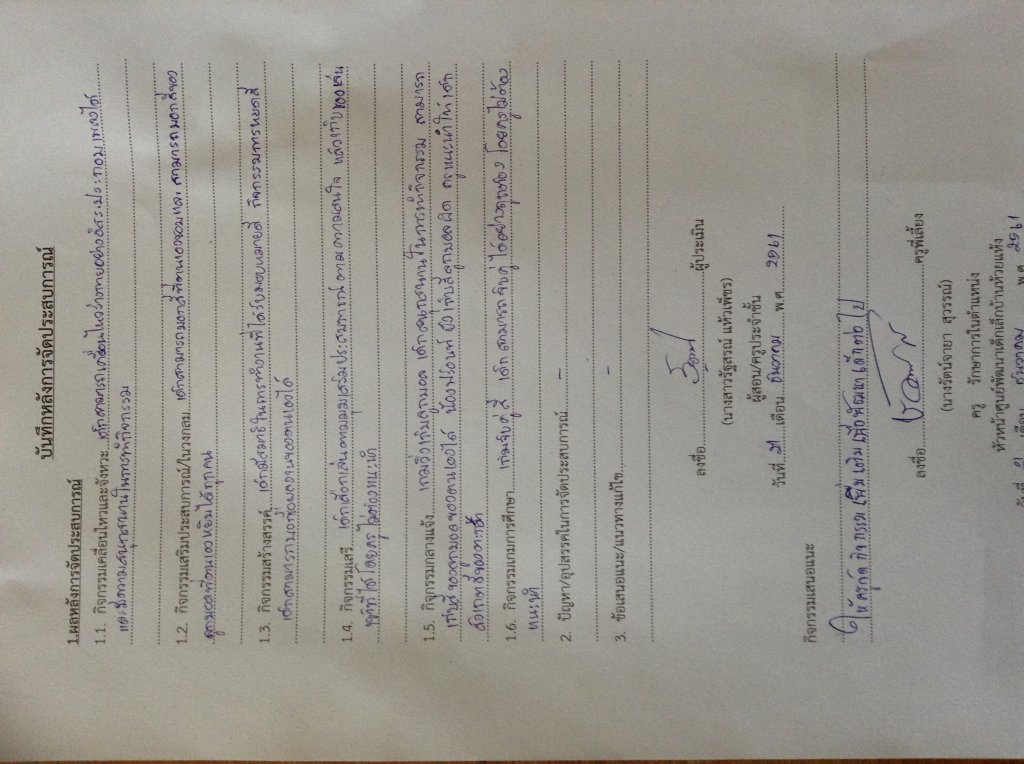 บันทึกหลังการจัดประสบการณ์
1.ผลหลังการจัดประสบการณ์
1.1. กิจกรรมเคลื่อนไหวและจังหวะ เด็กสามารถเคลื่อนไหวร่างกายอย่างอิสระประกอบเพลงได้
และมีความสนุกสนานในการทำกิจกรรม
1.2. กิจกรรมเสริมประสบการณ์/ในวงกลม เด็กสามารถบอกสีที่ตนเองชอบและสามารถบอกสีของ
ลูกบอลที่ตนเองหยิบได้ทุกคน
1.3. กิจกรรมสร้างสรรค์ เด็กมีสมาธิในการทำงานที่ได้รับมอบหมายดี กิจกรรมการหยดสี
เด็กสามารถบอกชื่อผลงานของตนเองได้
1.4. กิจกรรมเสรี เด็กเลือกเล่นตามมุมเสริมประสบการณ์ตามความสนใจ แล้วเก็บของเล่น
เข้าที่ได้โดยครูไม่ต้องแนะนำ
1.5. กิจกรรมกลางแจ้ง เกมวิ่งเก็บลูกบอล เด็กสนุกสนานในการทำกิจกรรม สามารถ
เก็บสีของลูกบอลของตนเองได้ น้องฟร้อนท์ ยังเก็บสีลูกบอลผิด ครูแนะนำให้เด็ก
สังเกตสีของตะกร้า
1.6. กิจกรรมเกมการศึกษา เกมจับคู่สี เด็กสามารถจับคู่ได้อย่างถูกต้อง โดยครูไม่ต้อง
แนะนำ
2. ปัญหา/อุปสรรคในการจัดประสบการณ์ -
3. ข้อเสนอแนะ/แนวทางแก้ไข -
ลงชื่อ ผู้ประเมิน
(นางสาววรัฐสรณ์ แห้วเพ็ชร)
ผู้สอน/ครูประจำชั้น
วันที่ เดือน ธันวาคม พ.ศ. 2561
กิจกรรมเสนอแนะ
ให้ครูจัดกิจกรรมเพิ่มเติมเพื่อพัฒนาเด็กต่อไป
ลงชื่อ ครูพี่เลี้ยง
(นางรัตน์จายา สุวรรณ์)
ครู รักษาการในตำแหน่ง
หัวหน้าศูนย์พัฒนาเด็กเล็กบ้านห้วยแห้ง
วันที่ เดือน ธันวาคม พ.ศ. 2561